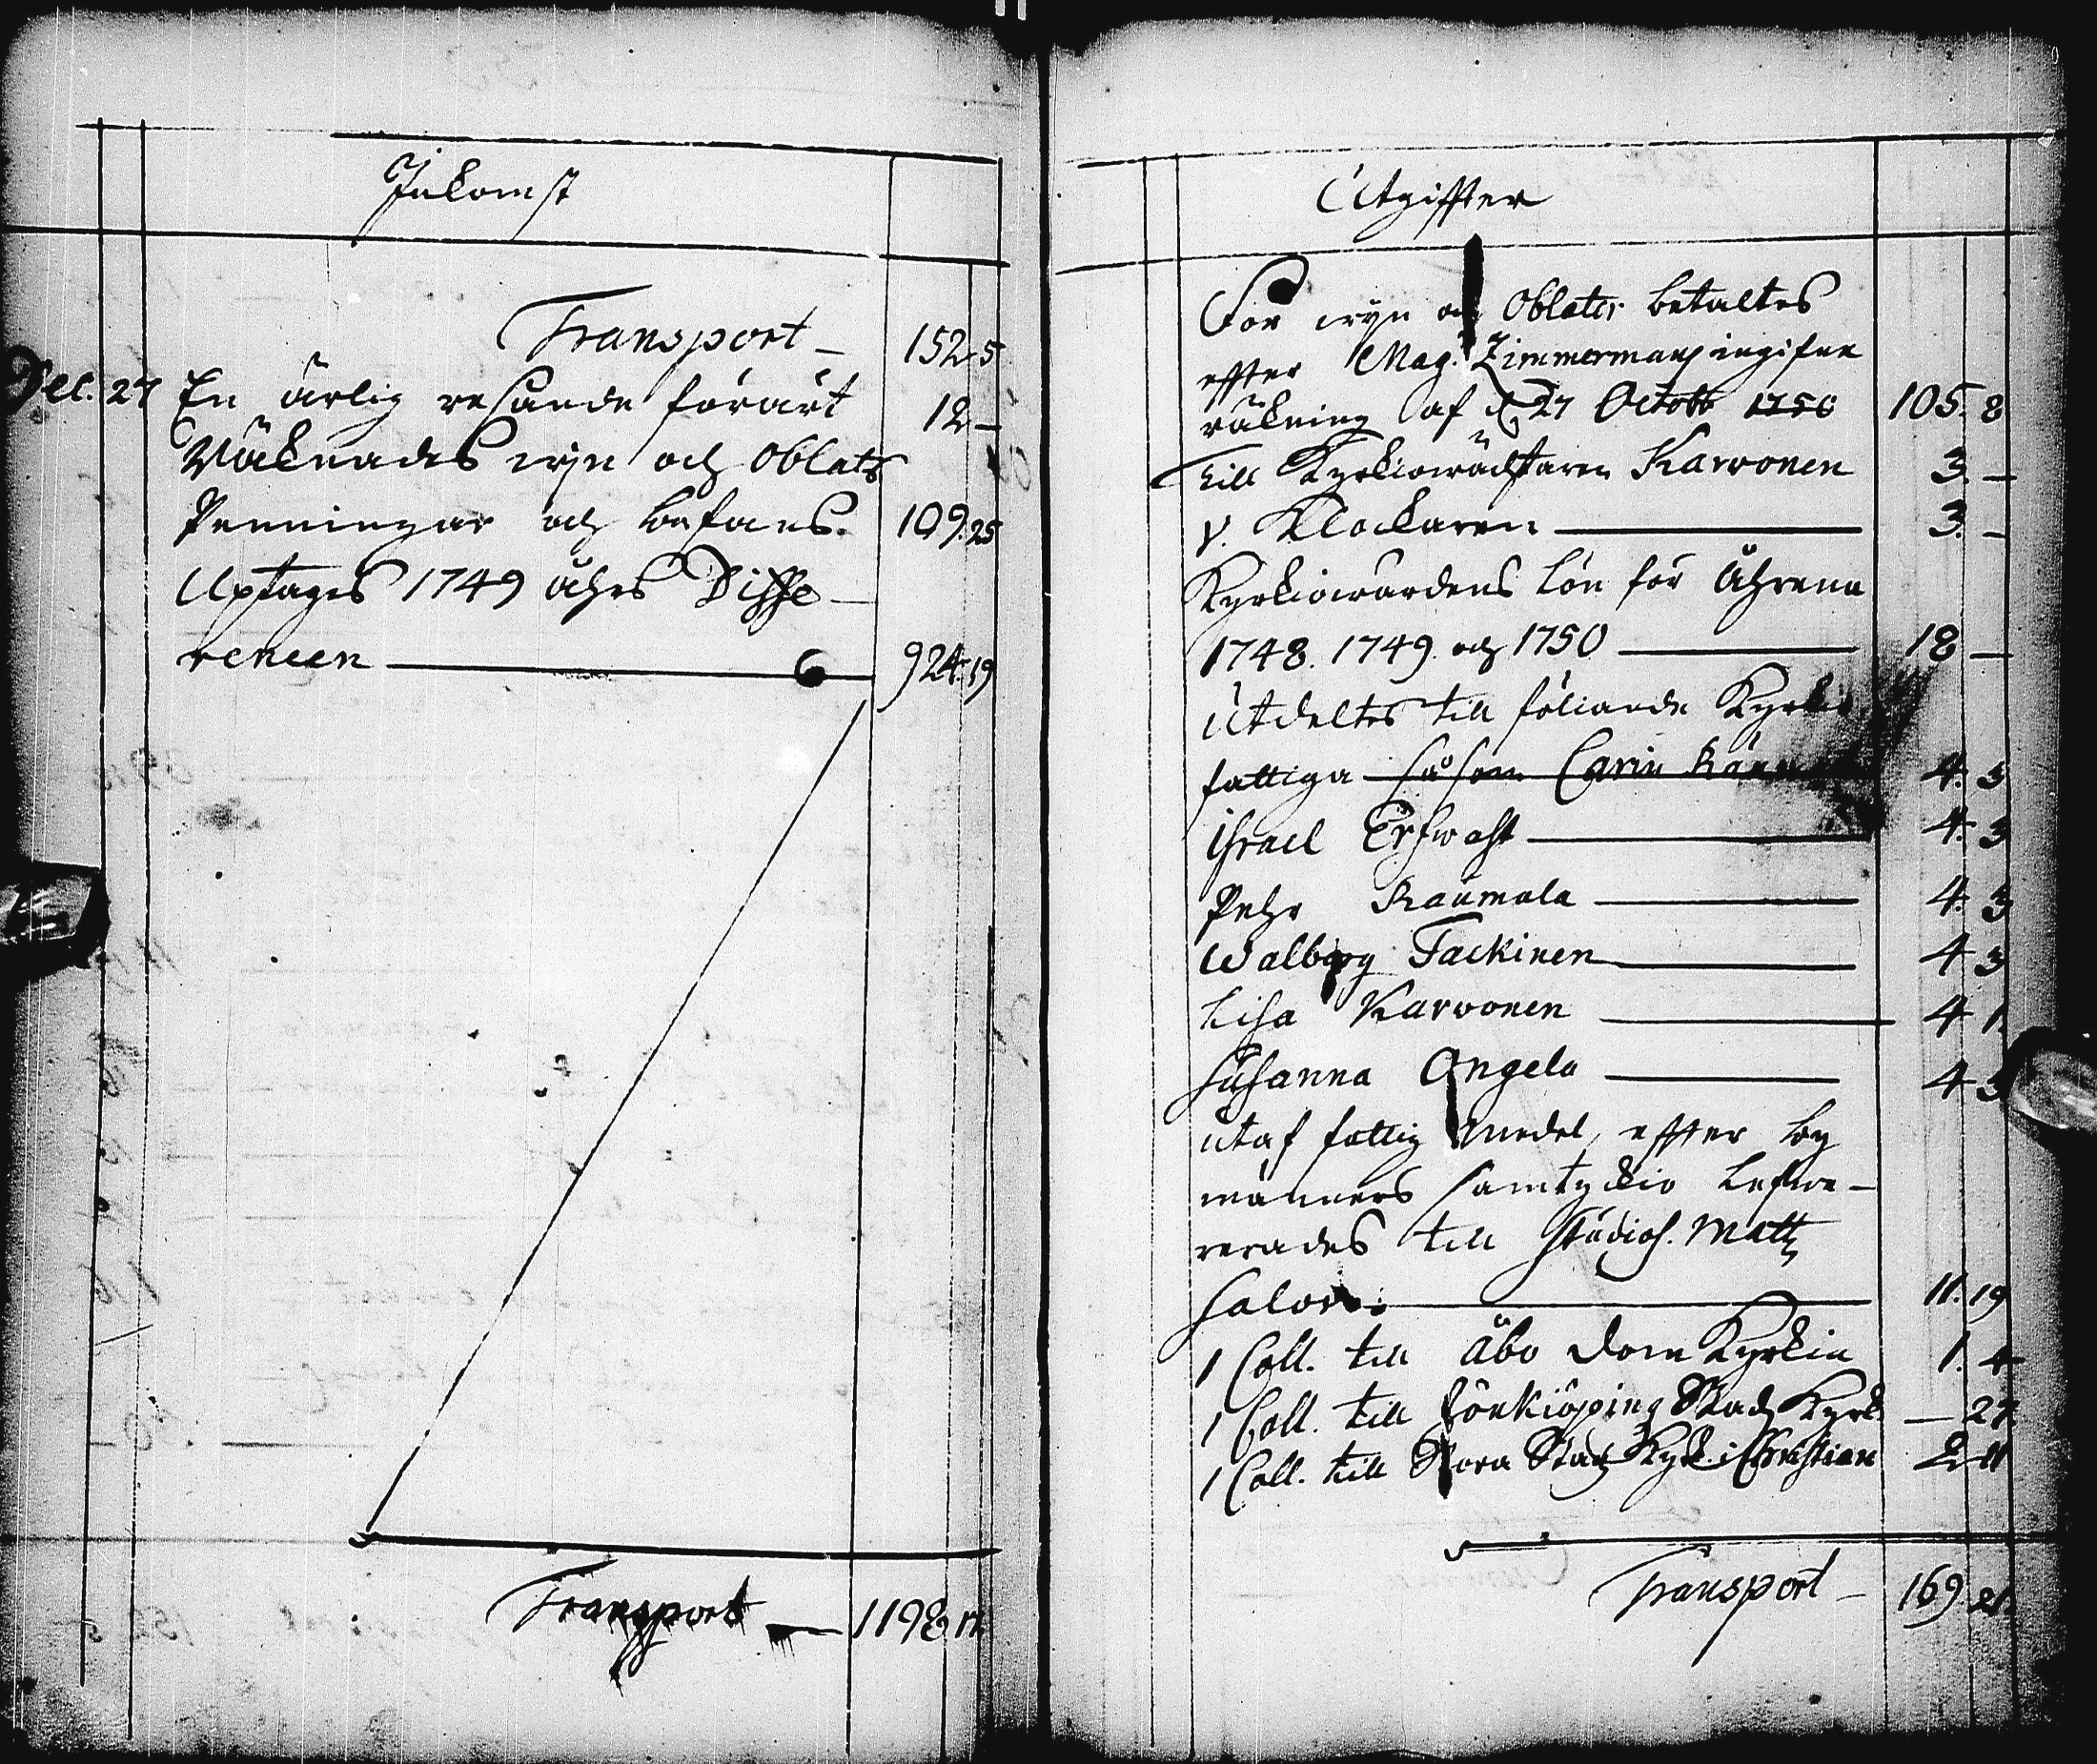 Inkomst
Transport 152 5
Dec. 27 En ärlig resande förärt 12 —
Räknades wijn och Oblats
Penningar och befans. 109. 25
Uptages 1749 åhrs Diffe-
rencen 924. 19
Transport 1198. 17
Utgiffter
För wijn och Oblater betaltes
effter Mag. Zimmermans ingifne
räkning af d 27 Octobr 1750 105. 8
till Kyrkiowächtaren Karvonen 3. —
v. Klockaren 3. —
Kyrkiowärdens Lön för Åhrena
1748. 1749. och 1750 18 —
Utdeltes till följande Kyrkio
fattiga såsom Carin 4. 3
Israel Erfwast 4. 3
Pehr Raumala 4. 3
Walborg Tackinen 4 3
Lisa Karvonen 4 1.
Susanna Ongela 4 3
utaf fattig medel, effter Sog
männers samtyckio Lefwe-
rerades till Studios. Matts
Salov 11. 19
1 Coll. till Åbo Dom Kyrkia 1. 4
1 Coll. till Jönkiöping Stads Kyrk. — 27
1 Coll. till Stora Stads Kyrk. i Christian 2 11
Transport 169. 21.